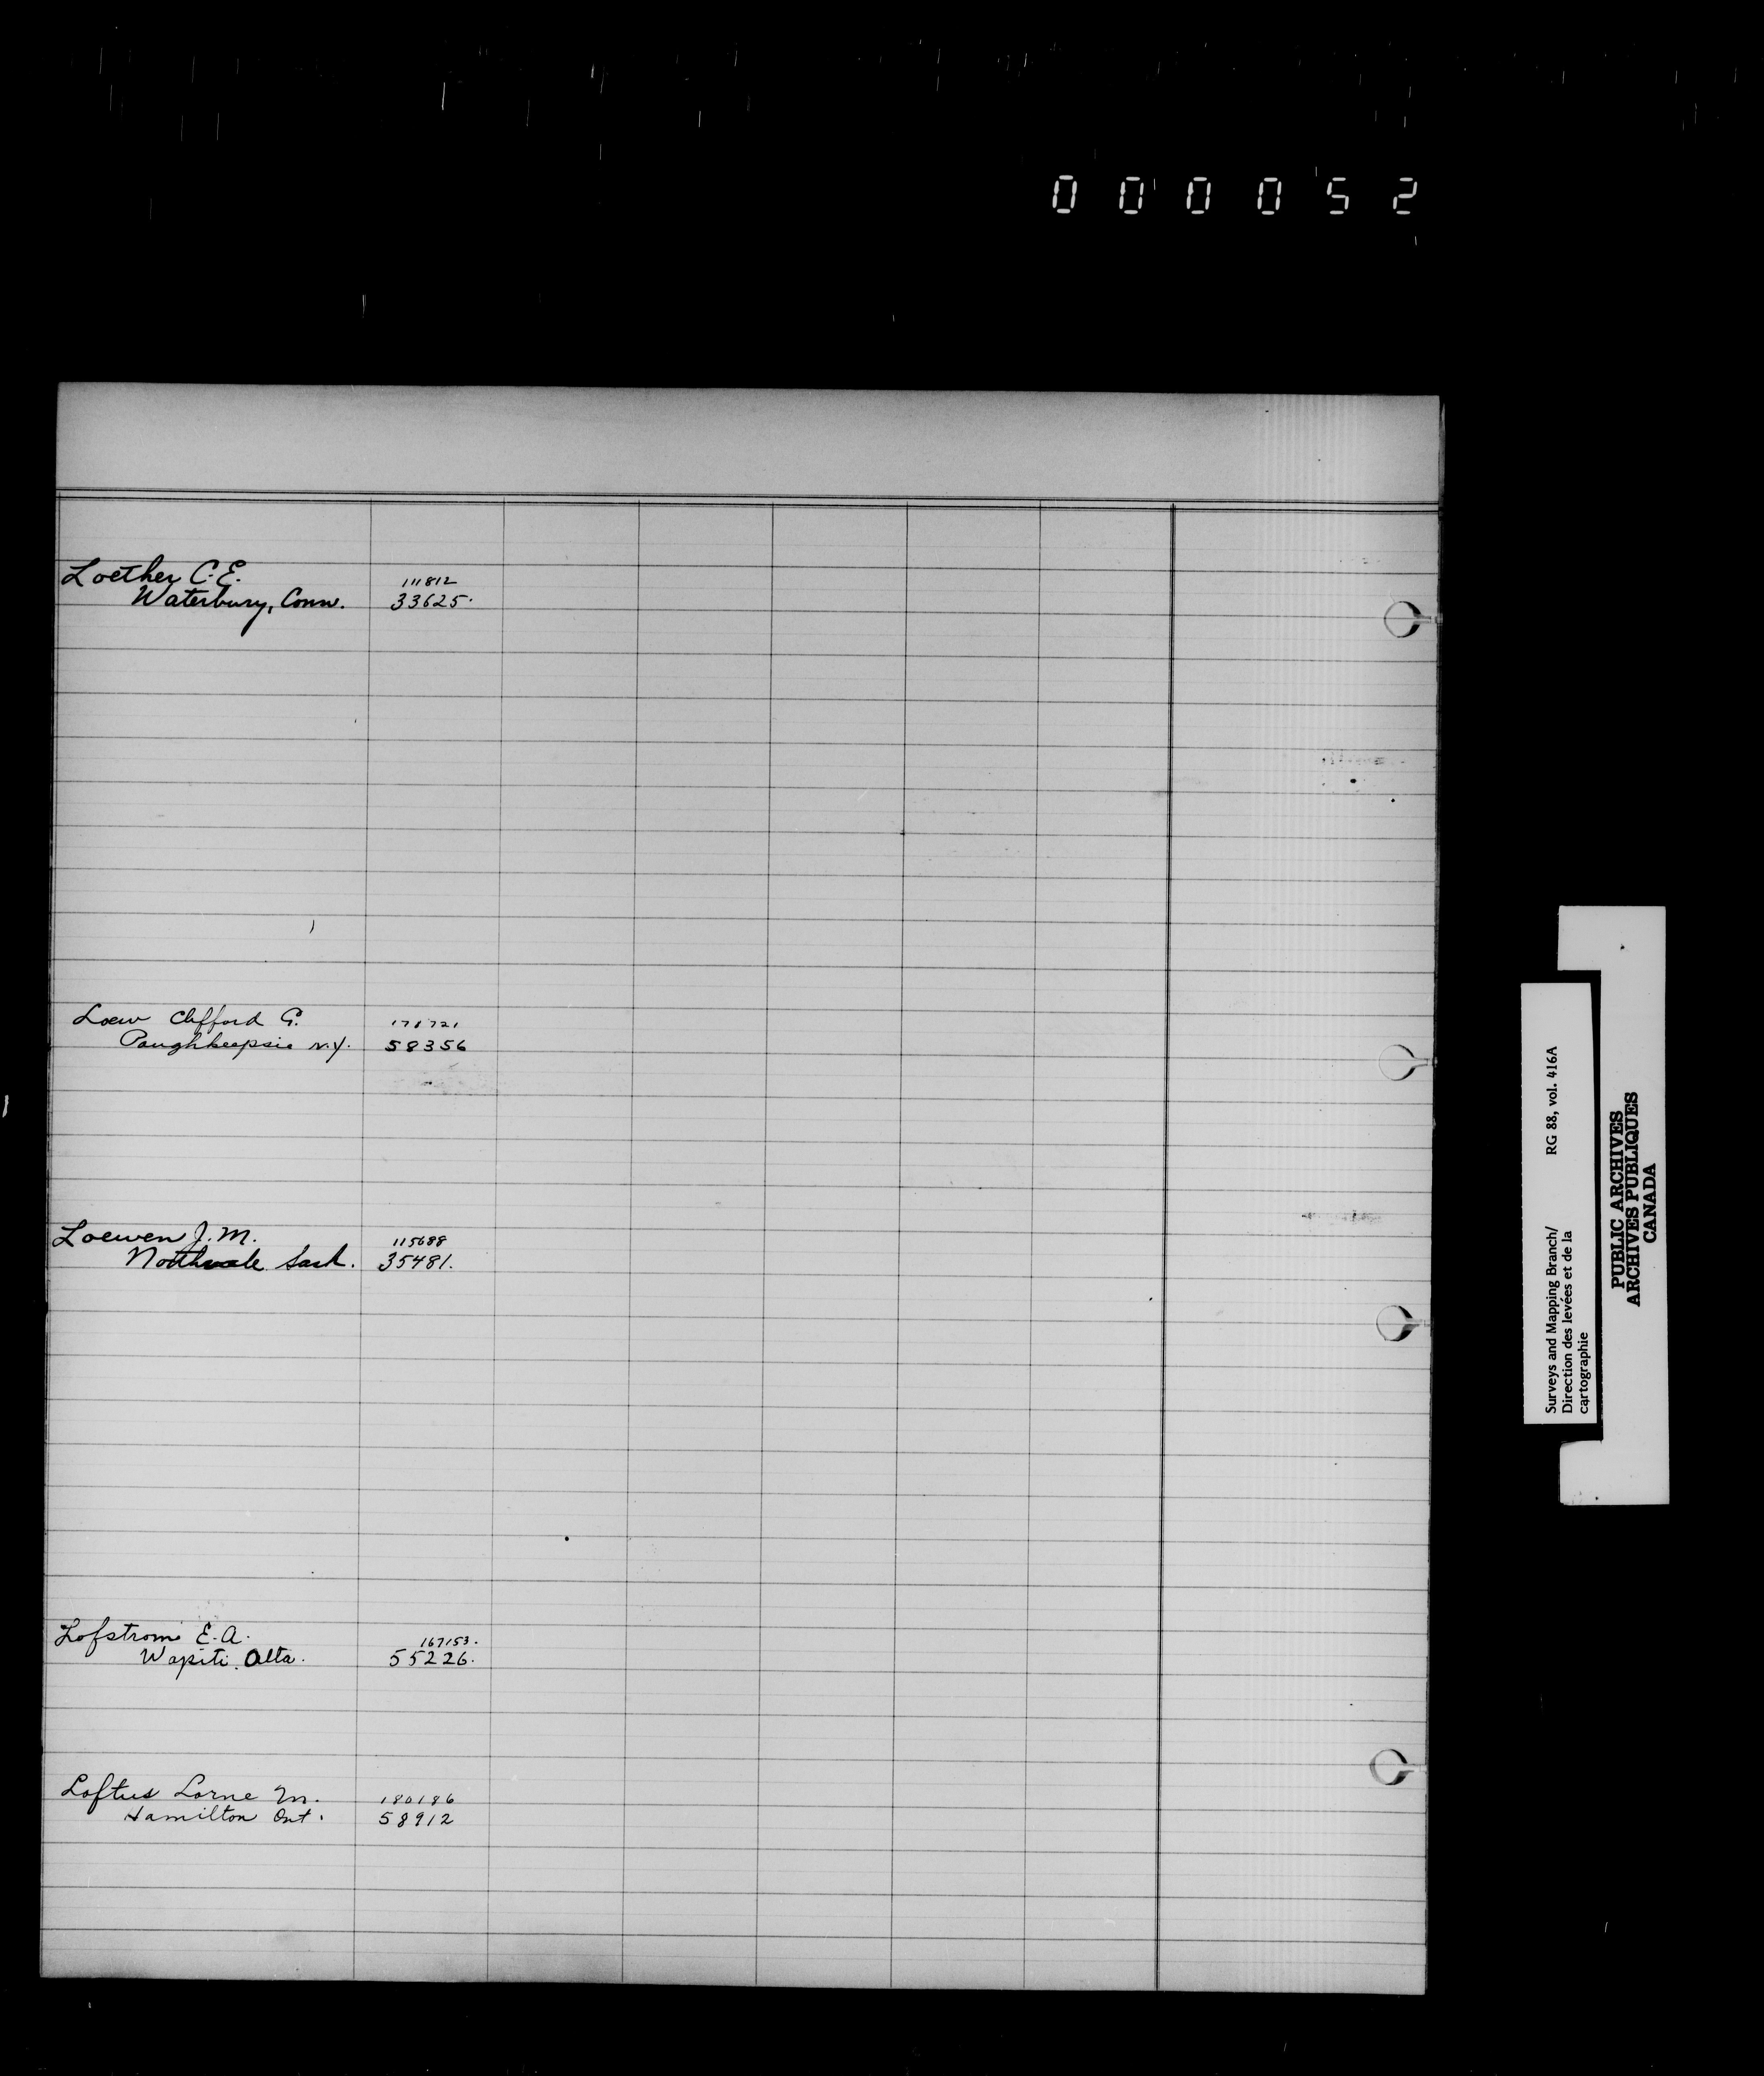 000052
Loether C. E.
Waterbury, Conn.
111812
33625.
Loew Clifford G.
Poughkeepsie N.Y.
58356
Loewen J. M.
Northvale Sask.
115688
35481.
Lofstrom E. A.
Wapiti, Alta.
167153.
55226.
Loftus Lorne M.
Hamilton Ont.
180186
58912
Surveys and Mapping Branch/ RG 88, vol. 416A
Direction des levées et de la
cartographie
PUBLIC ARCHIVES
ARCHIVES PUBLIQUES
CANADA